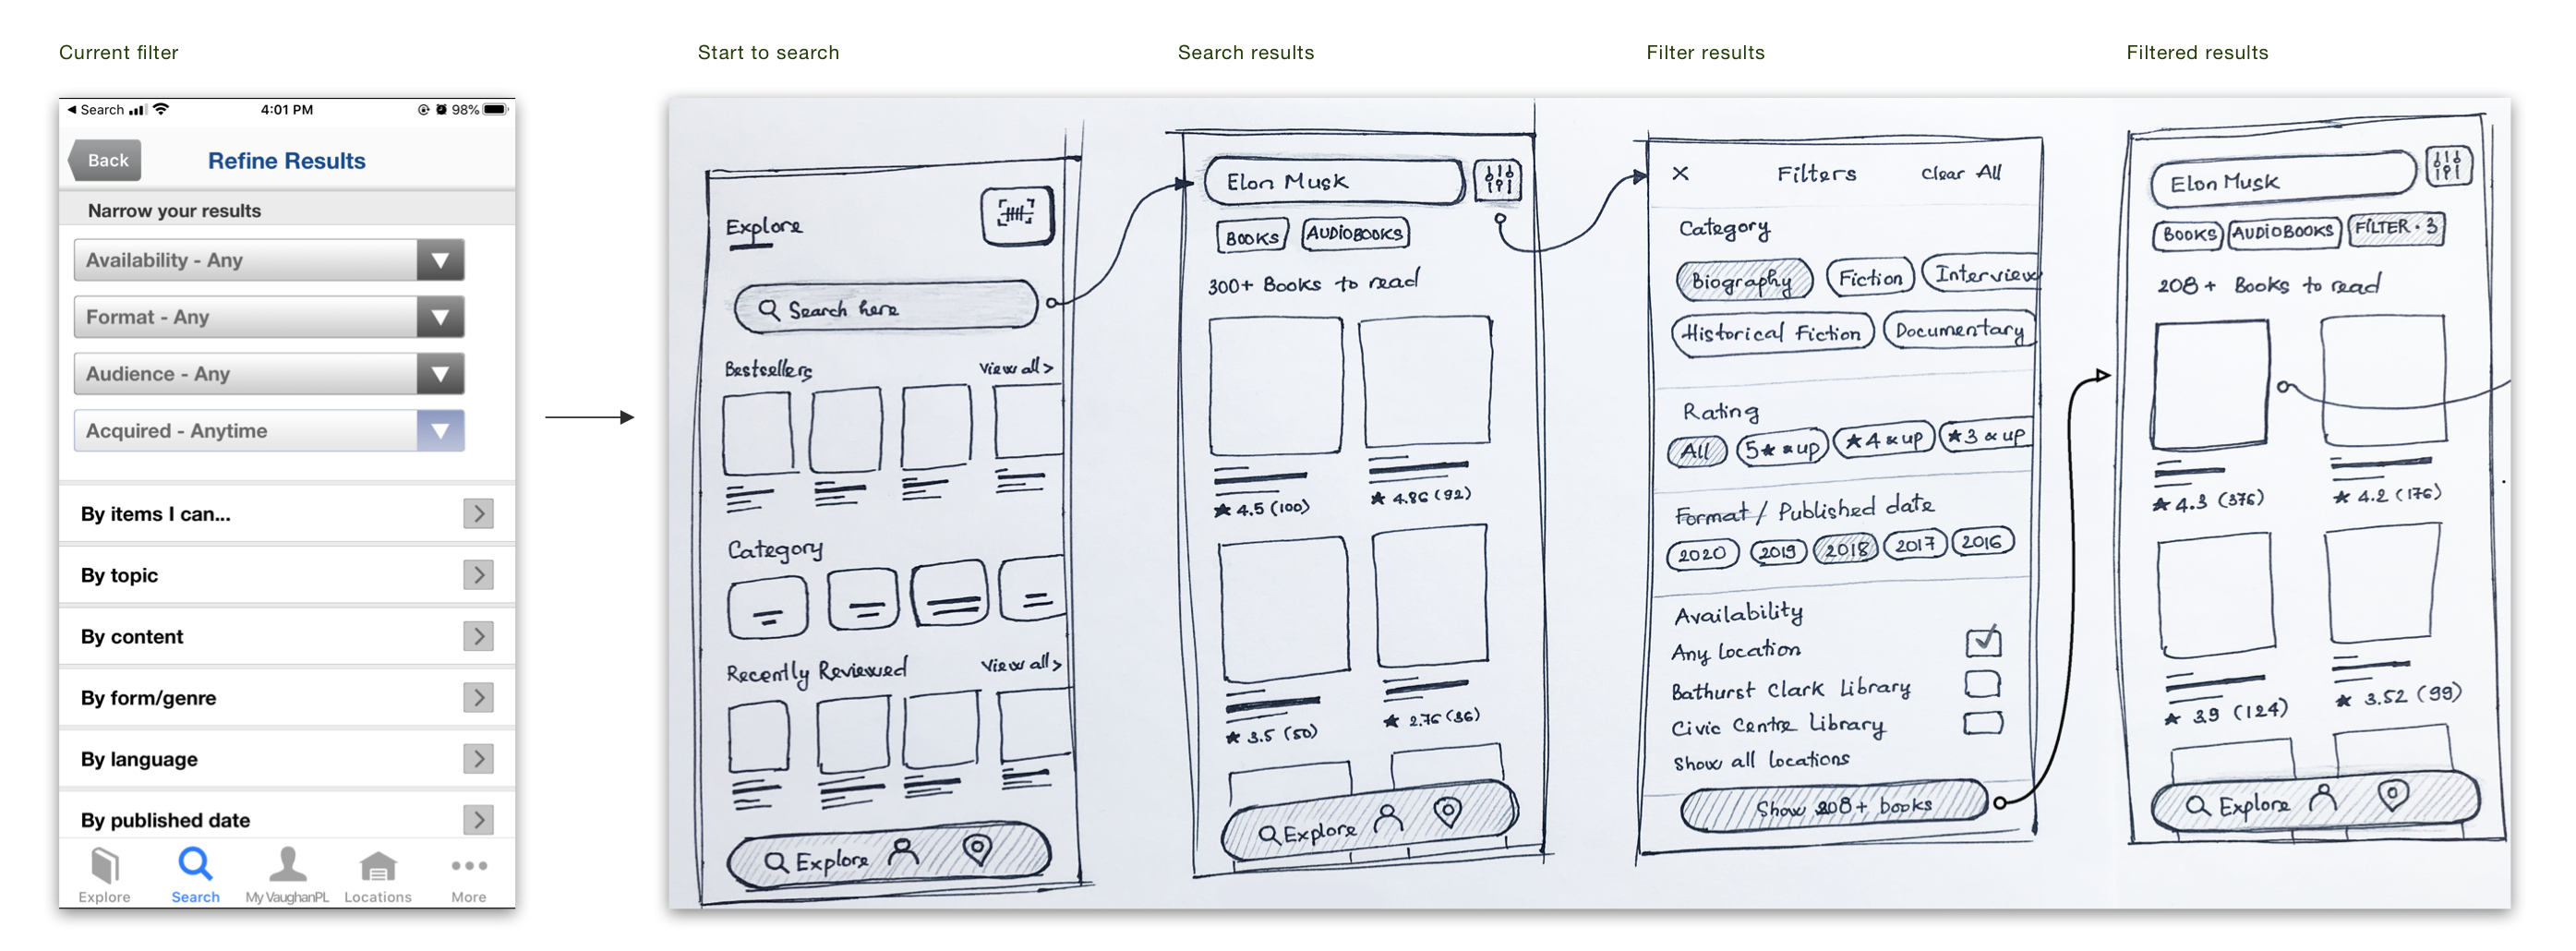 Current filter
Start to search
Search results
Filter results
Filtered results
Search
4:01 PM
98%
Back
Refine Results
Narrow your results
Availability - Any
Format - Any
Audience - Any
Acquired - Anytime
By items I can...
By topic
By content
By form/genre
By language
By published date
Explore
Search
My VaughanPL
Locations
More
Explore
Search here
Bestsellers
View all >
Category
Recently Reviewed
View all >
Explore
Elon Musk
BOOKS
AUDIOBOOKS
300+ Books to read
★ 4.5 (100)
★ 4.86 (92)
★ 3.5 (50)
★ 2.76 (36)
Explore
X Filters Clear All
Category
Biography
Fiction
Interview
Historical Fiction
Documentary
Rating
All
5★ & up
★4 & up
★3 & up
Format / Published date
2020
2019
2018
2017
2016
Availability
Any location
Bathurst Clark Library
Civic Centre Library
Show all locations
Show 208+ books
Elon Musk
BOOKS
AUDIOBOOKS
FILTER · 3
208+ Books to read
★ 4.3 (376)
★ 4.2 (176)
★ 3.9 (124)
★ 3.52 (99)
Explore